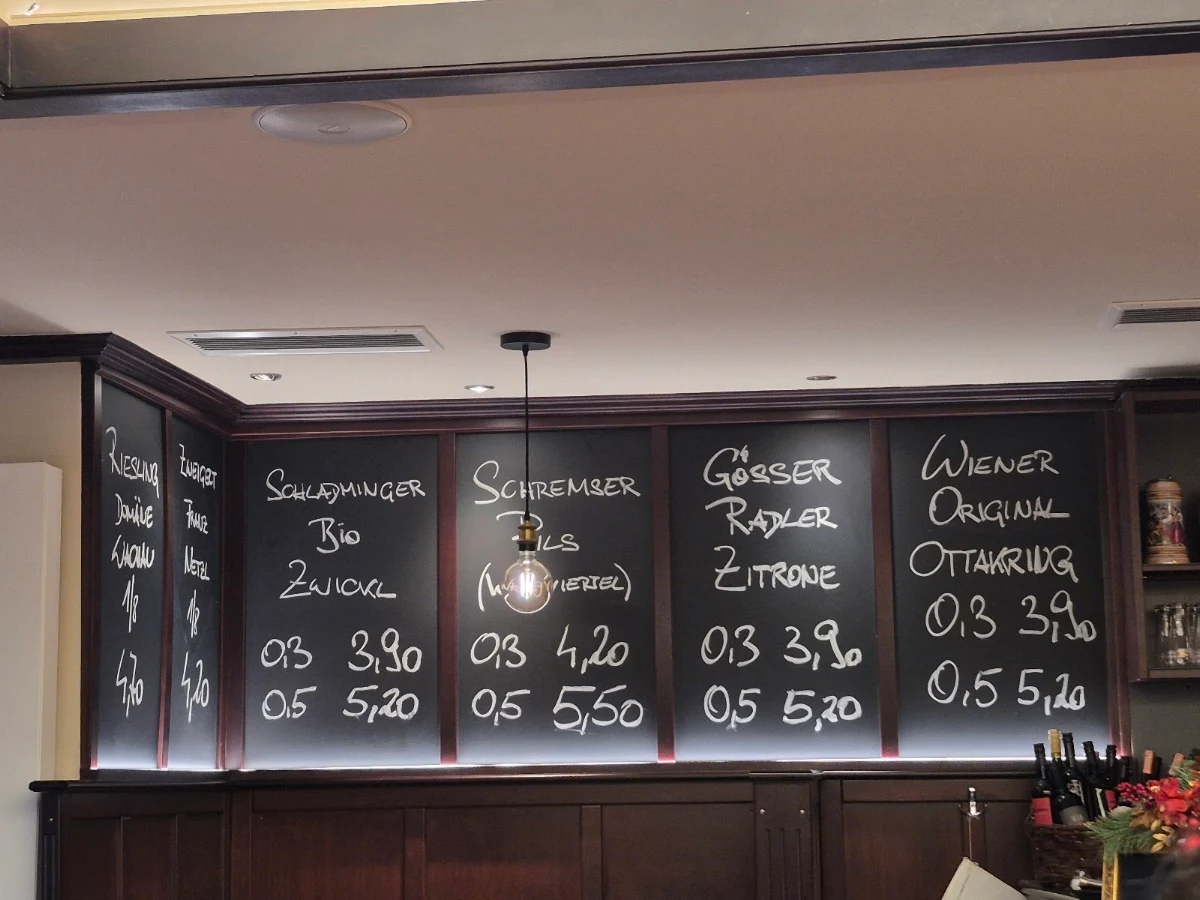 RIESLING
DOMÄNE
WACHAU
1/8
ZWEIGELT
FRANZ
NETZL
1/8
4,20
SCHLADMINGER
BIO
ZWICKL
0,3 3,90
0,5 5,20
SCHREMSER
PILS
0,3 4,20
0,5 5,50
GÖSSER
RADLER
ZITRONE
0,3 3,90
0,5 5,20
WIENER
ORIGINAL
OTTAKRING
0,3 3,90
0,5 5,20